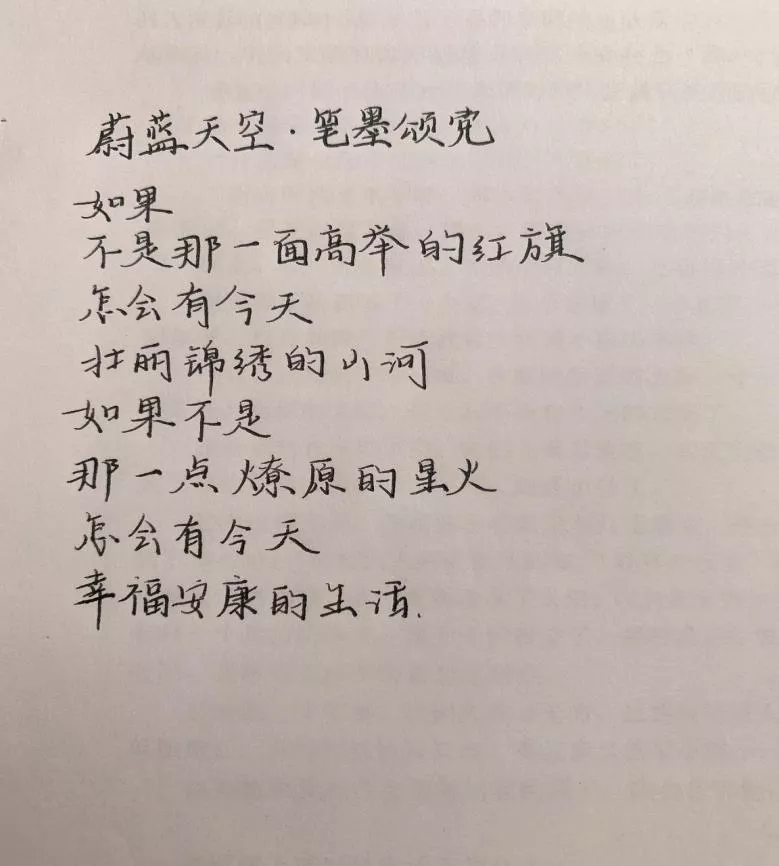 蔚蓝天空·笔墨颂党
如果
不是那一面高举的红旗
怎会有今天
壮丽锦绣的山河
如果不是
那一点燎原的星火
怎会有今天
幸福安康的生活.